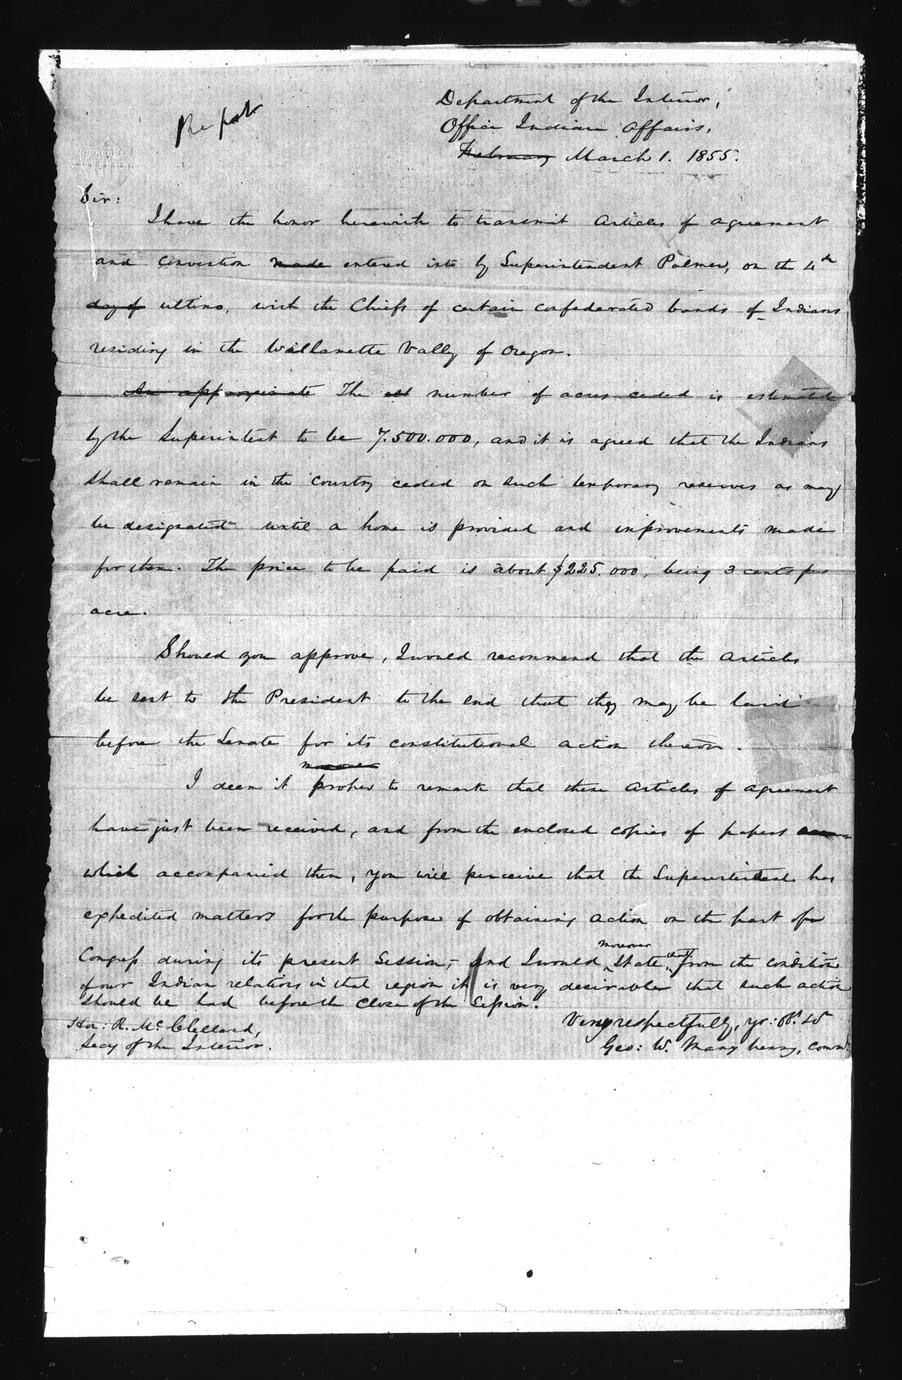 Report
Department of the Interior,
Office Indian Affairs,
February March 1. 1855.
Sir:
I have the honor herewith to transmit articles of agreement
and convention made entered into by Superintendent Palmer, on the 4th
day of ultimo, with the Chiefs of certain confederated bands of Indians
residing in the Willamette Vally of Oregon.
An approximate The est number of acres ceded is estimated
by the Superintdt to be 7.500.000, and it is agreed that the Indians
shall remain in the country ceded on such temporary reserves as may
be designated until a home is provided and improvements made
for them. The price to be paid is about $225.000, being 3 cents per
acre.
Should you approve, I would recommend that the articles
be sent to the President to the end that they may be laid
before the Senate for its constitutional action thereon.
moreover
I deem it proper to remark that these articles of agreement
have just been received, and from the enclosed copies of papers
which accompanied them, you will perceive that the Superintendent has
expedited matters for the purpose of obtaining action on the part of
Congress during its present Session, and I would moreover State that from the condition
of our Indian relations in that region it is very desirable that such action
should be had before the close of the Session.
Very respectfully, yr: ob. st
Hon: R. McClelland,
Secy of the Interior.
Geo: W. Manypenny, Comr.